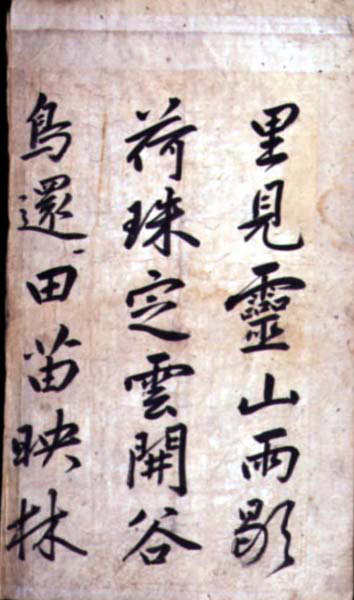 里見靈山雨歇
荷珠定雲開谷
鳥還田苗映林